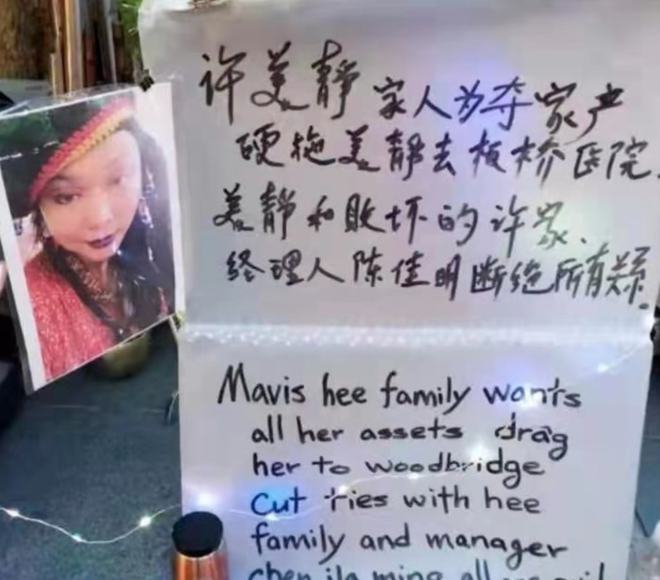 许美静 家人为夺家产
硬拖美静去板桥医院.
美静和败坏的许家.
经理人陈佳明断绝所有关系.
Mavis hee family wants
all her assets drag
her to woodbridge
cut ties with hee
family and manager
chen jia ming all